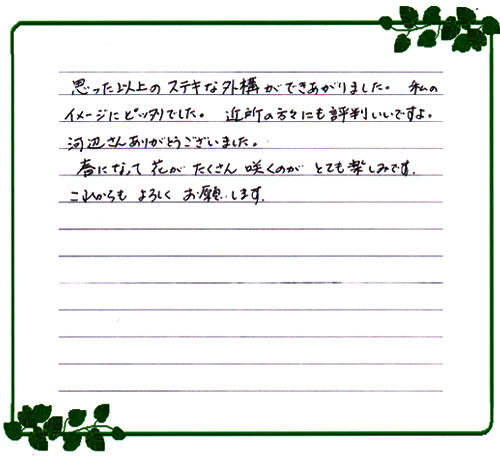 思った以上のステキな外構ができあがりました。 私の
イメージにピッタリでした。 近所の方々にも評判いいですよ。
河辺さんありがとうございました。
春になって花がたくさん咲くのがとても楽しみです。
これからもよろしくお願いします。